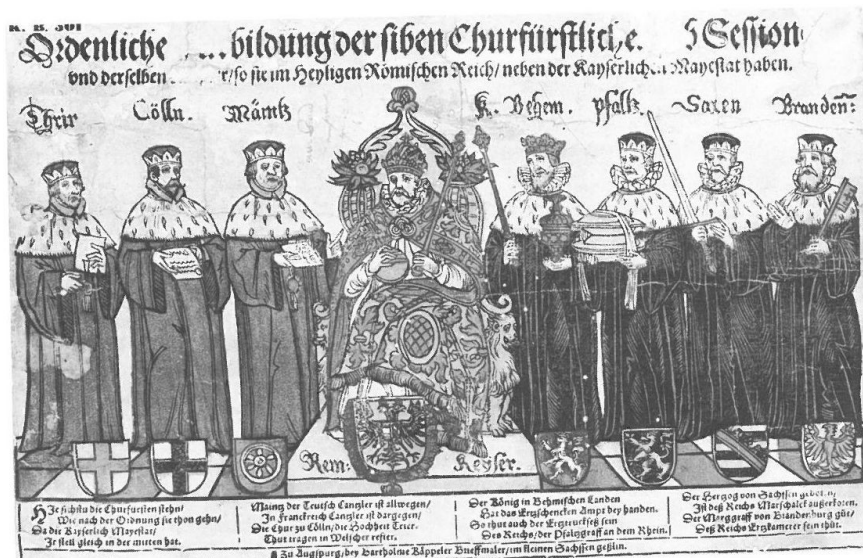 K. B. 301
Ordenliche bildung der siben Churfürstliche Session
vnd derselben so sie im Heyligen Römischen Reich/ neben der Kayserlichen Mayestat haben.
Thrir Cölln. Mäintz K. Behem. Pfaltz. Saxen Branden:
Rem: Keyser.
HJe sichstu die Churfursten stehn/
Wie nach der Ordnung sie thon gehn/
Da die Kayserlich Mayestat/
Je stell gleich in der mitten hat.
Maintz der Teutsch Cantzler ist allwegen/
In Franckreich Cantzler ist dargegen/
Die Chur zu Cölln/ die Hochheit Trier.
Thut tragen in Welscher refier.
Der König in Behmischen Landen
Hat das Ertzschencken Ampt bey handen.
So thut auch der Ertztruckseß sein
Des Reichs/ der Pfaltzgraff an dem Rhein.
Der Hertzog von Sachsen geboren/
Ist deß Reichs Marschalck außerkoren.
Der Marggraff von Brandenburg güt/
Deß Reichs Ertzkamerer sein thüt.
Zu Augspurg/ bey Bartholme Käppeler Brieffmaler/ im kleinen Sachssen geßlin.